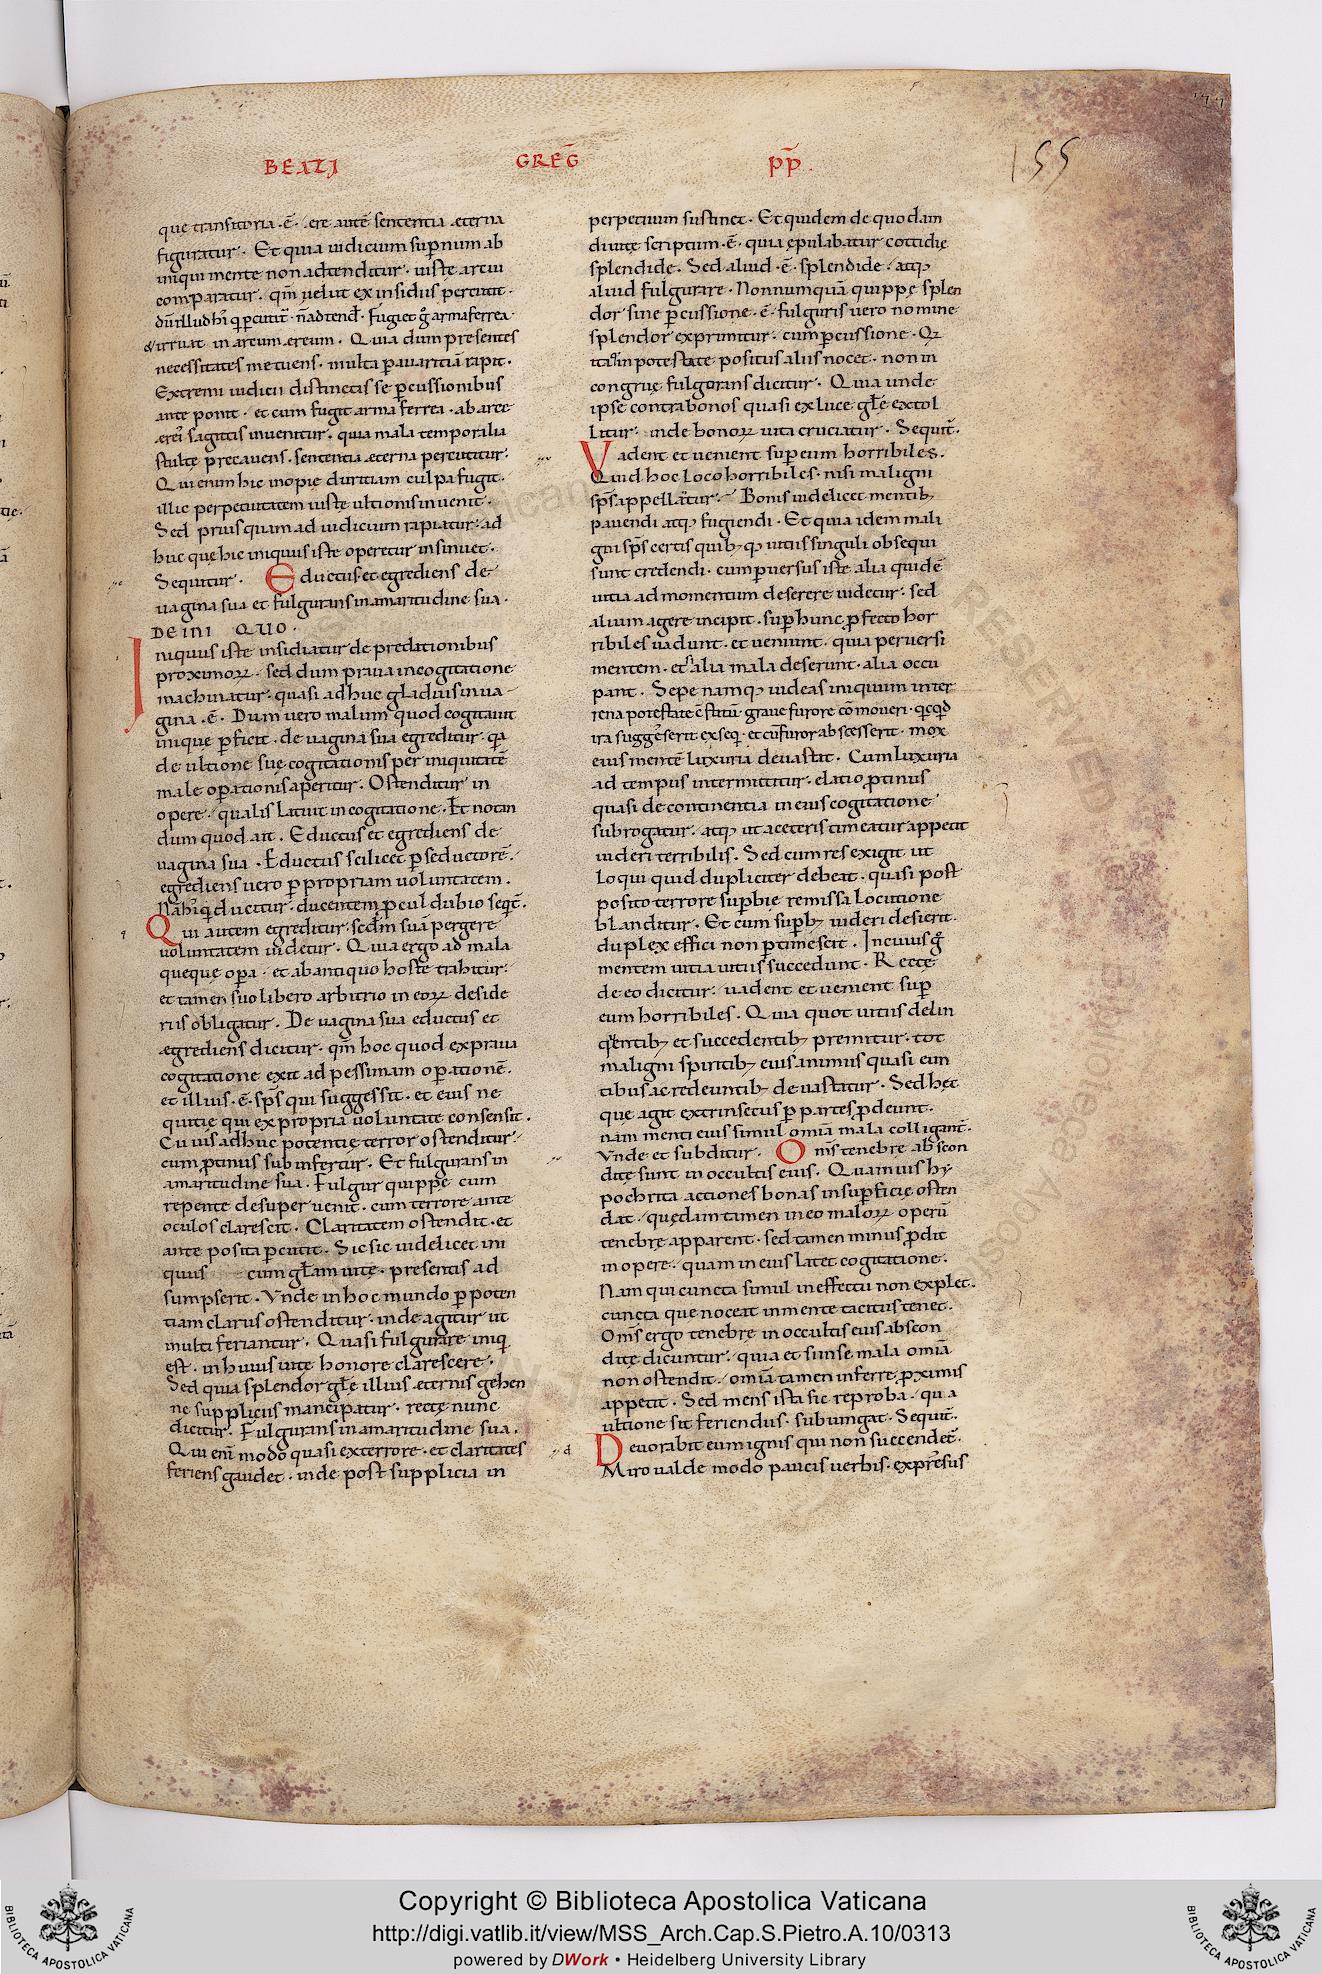 BEATI GREḠ P̄P.
155
quę transitoria · ē · ęre autē sententia ęterna
figuratur · Et quia iudicium supernum ab
iniqui mente non adtenditur · iustę arcui
comparatur · qm̄ uelut ex insidiis percutit ·
necessitates metuens · multa p auaritiā rapit ·
Extremi iudicii districtis se percussionibus
ante ponit · et cum fugit arma ferrea · ab arce
ęrei sagittis inuenitur · quia mala temporalia
stultę precauens · sententia ęterna percutitur ·
Qui enim hic inopię duritiam culpa fugit ·
illic perpetuitatem iustę ultionis inuenit ·
Sed prius quam ad iudicium rapiatur · ad
huc quę hic iniquus iste operetur insinuet ·
Sequitur · Eductus et egrediens de
uagina sua et fulgurans in amaritudine sua ·
DE INIQUO ·
Iniquus iste insidiatur de predationibus
proximoꝝ · sed dum praua in cogitatione
machinatur · quasi adhuc gladius in ua
gina · ē · Dum uero malum quod cogitauit
inique p̄ficit · de uagina sua egreditur · qa
de ultione suę cogitationis per iniquitatē
male opationis aperitur · Ostenditur in
opere · qualis latuit in cogitatione · Et notan
dum quod ait · Eductus et egrediens de
uagina sua · Eductus scilicet p seductorē ·
egrediens uero p propriam uoluntatem ·
Qui autem egreditur · scdm suā pergere
uoluntatem uidetur · Quia ergo ad mala
quęque opa · et ab antiquo hoste trahitur ·
et tamen suo libero arbitrio in eoꝝ deside
riis obligatur · De uagina sua eductus et
ęgrediens dicitur · qm̄ hoc quod ex praua
cogitatione exit ad pessimam opationē ·
et illius · ē · sp̄s qui suggessit · et eius ne
quitię qui ex propria uoluntate consensit ·
Cuius adhuc potentię terror ostenditur ·
cum ptinus sub infertur · Et fulgurans in
amaritudine sua · Fulgur quippe cum
repente desuper uenit · cum terrore ante
oculos clarescit · Claritatem ostendit · et
ante posita pcutit · Sic sic uidelicet ini
quus cum glām uitę · presentis ad
sumpserit · Vnde in hoc mundo p poten
tiam clarus ostenditur · inde agitur ut
multi feriantur · Quasi fulgurare iniqi
est · in huius uitę honore clarescere ·
Sed quia splendor glę illius · ęternis gehen
nę suppliciis mancipatur · recte nunc
dicitur · Fulgurans in amaritudine sua ·
Qui eni modo quasi ex terrore · et claritates
feriens gaudet · inde post supplicia in
perpetuum sustinet · Et quidem de quodam
diuite scriptum · ē · quia ępulabatur cottidię
splendide · Sed aliud · ē · splendide · atqꝫ
aliud fulgurare · Nonnumquā quippe splen
dor sine pcussione · ē · fulguris uero nomine
splendor exprimitur · cum pcussione · Qꝫ
itaq in potestate positus aliis nocet · non in
congruę fulgurans dicitur · Quia unde
ipse contra bonos quasi ex luce glę extol
litur · inde bonoꝝ uita cruciatur · Sequit̄ ·
Vadent et uenient sup eum horribiles ·
Quid hoc loco horribiles · nisi maligni
sp̄s appellantur · Bonis uidelicet mentibꝫ
pauendi atqꝫ fugiendi · Et quia idem mali
gni sp̄s certis quibꝫqꝫ uitiis singuli obsequi
sunt credendi · cum puersus iste alia quidē
uitia ad momentum deserere uidetur · sed
alium agere incipit · sup hunc pfecto hor
ribiles uadunt · et ueniunt · quia peruersi
mentem · etsi alia mala deserunt · alia occu
pant · Sepe namqꝫ uideas iniquum inter
rena potestate ē statū · graue furore cōmoueri · qcqd
ira suggesserit exseqi · et cū furor abscesserit · mox
eius mentē luxuria deuastat · Cum luxuria
ad tempus intermittitur · elatio ptinus
quasi de continentia in eius cogitatione
subrogatur · atqꝫ ut a ceteris timeatur appetit
uideri terribilis · Sed cum res exigit ut
loqui quid dupliciter debeat · quasi post
posito terrore supbie remissa locutione
blanditur · Et cum supbꝫ uideri desierit ·
duplex effici non ptimescit · In cuius g̊
mentem uitia uitiis succedunt · Recte
de eo dicitur · uadent et uenient sup
eum horribiles · Quia quot uitiis delin
quentibꝫ et succedentibꝫ premitur · tot
maligni spiritibꝫ eius animus quasi eun
tibus ac redeuntibꝫ deuastatur · Sed hęc
que agit extrinsecus p partes pdeunt ·
nam menti eius simul omia mala colligant̄ ·
Vnde et subditur · Om̄s tenebrę abscon
ditę sunt in occultis eius · Quamuis hy
pochrita actiones bonas in supficie osten
dat · quędam tamen in eo maloꝝ operū
tenebrę apparent · sed tamen minus pdit
in opere · quam in eius latet cogitatione ·
Nam qui cuncta simul in effectu non explet ·
cuncta que noceat in mente tacitus tenet ·
Om̄s ergo tenebrę in occultis eius abscon
ditę dicuntur · quia etsi in se mala omia
non ostendit · omia tamen inferre pximis
appetit · Sed mens ista sic reproba · qua
ultione sit feriendus · subiungat · Sequit̄ ·
Deuorabit eum ignis qui non succendet̄ ·
Miro ualde modo paucis uerbis · expressus
Copyright © Biblioteca Apostolica Vaticana
http://digi.vatlib.it/view/MSS_Arch.Cap.S.Pietro.A.10/0313
powered by DWork • Heidelberg University Library
BIBLIOTECA APOSTOLICA VATICANA
BIBLIOTECA APOSTOLICA VATICANA